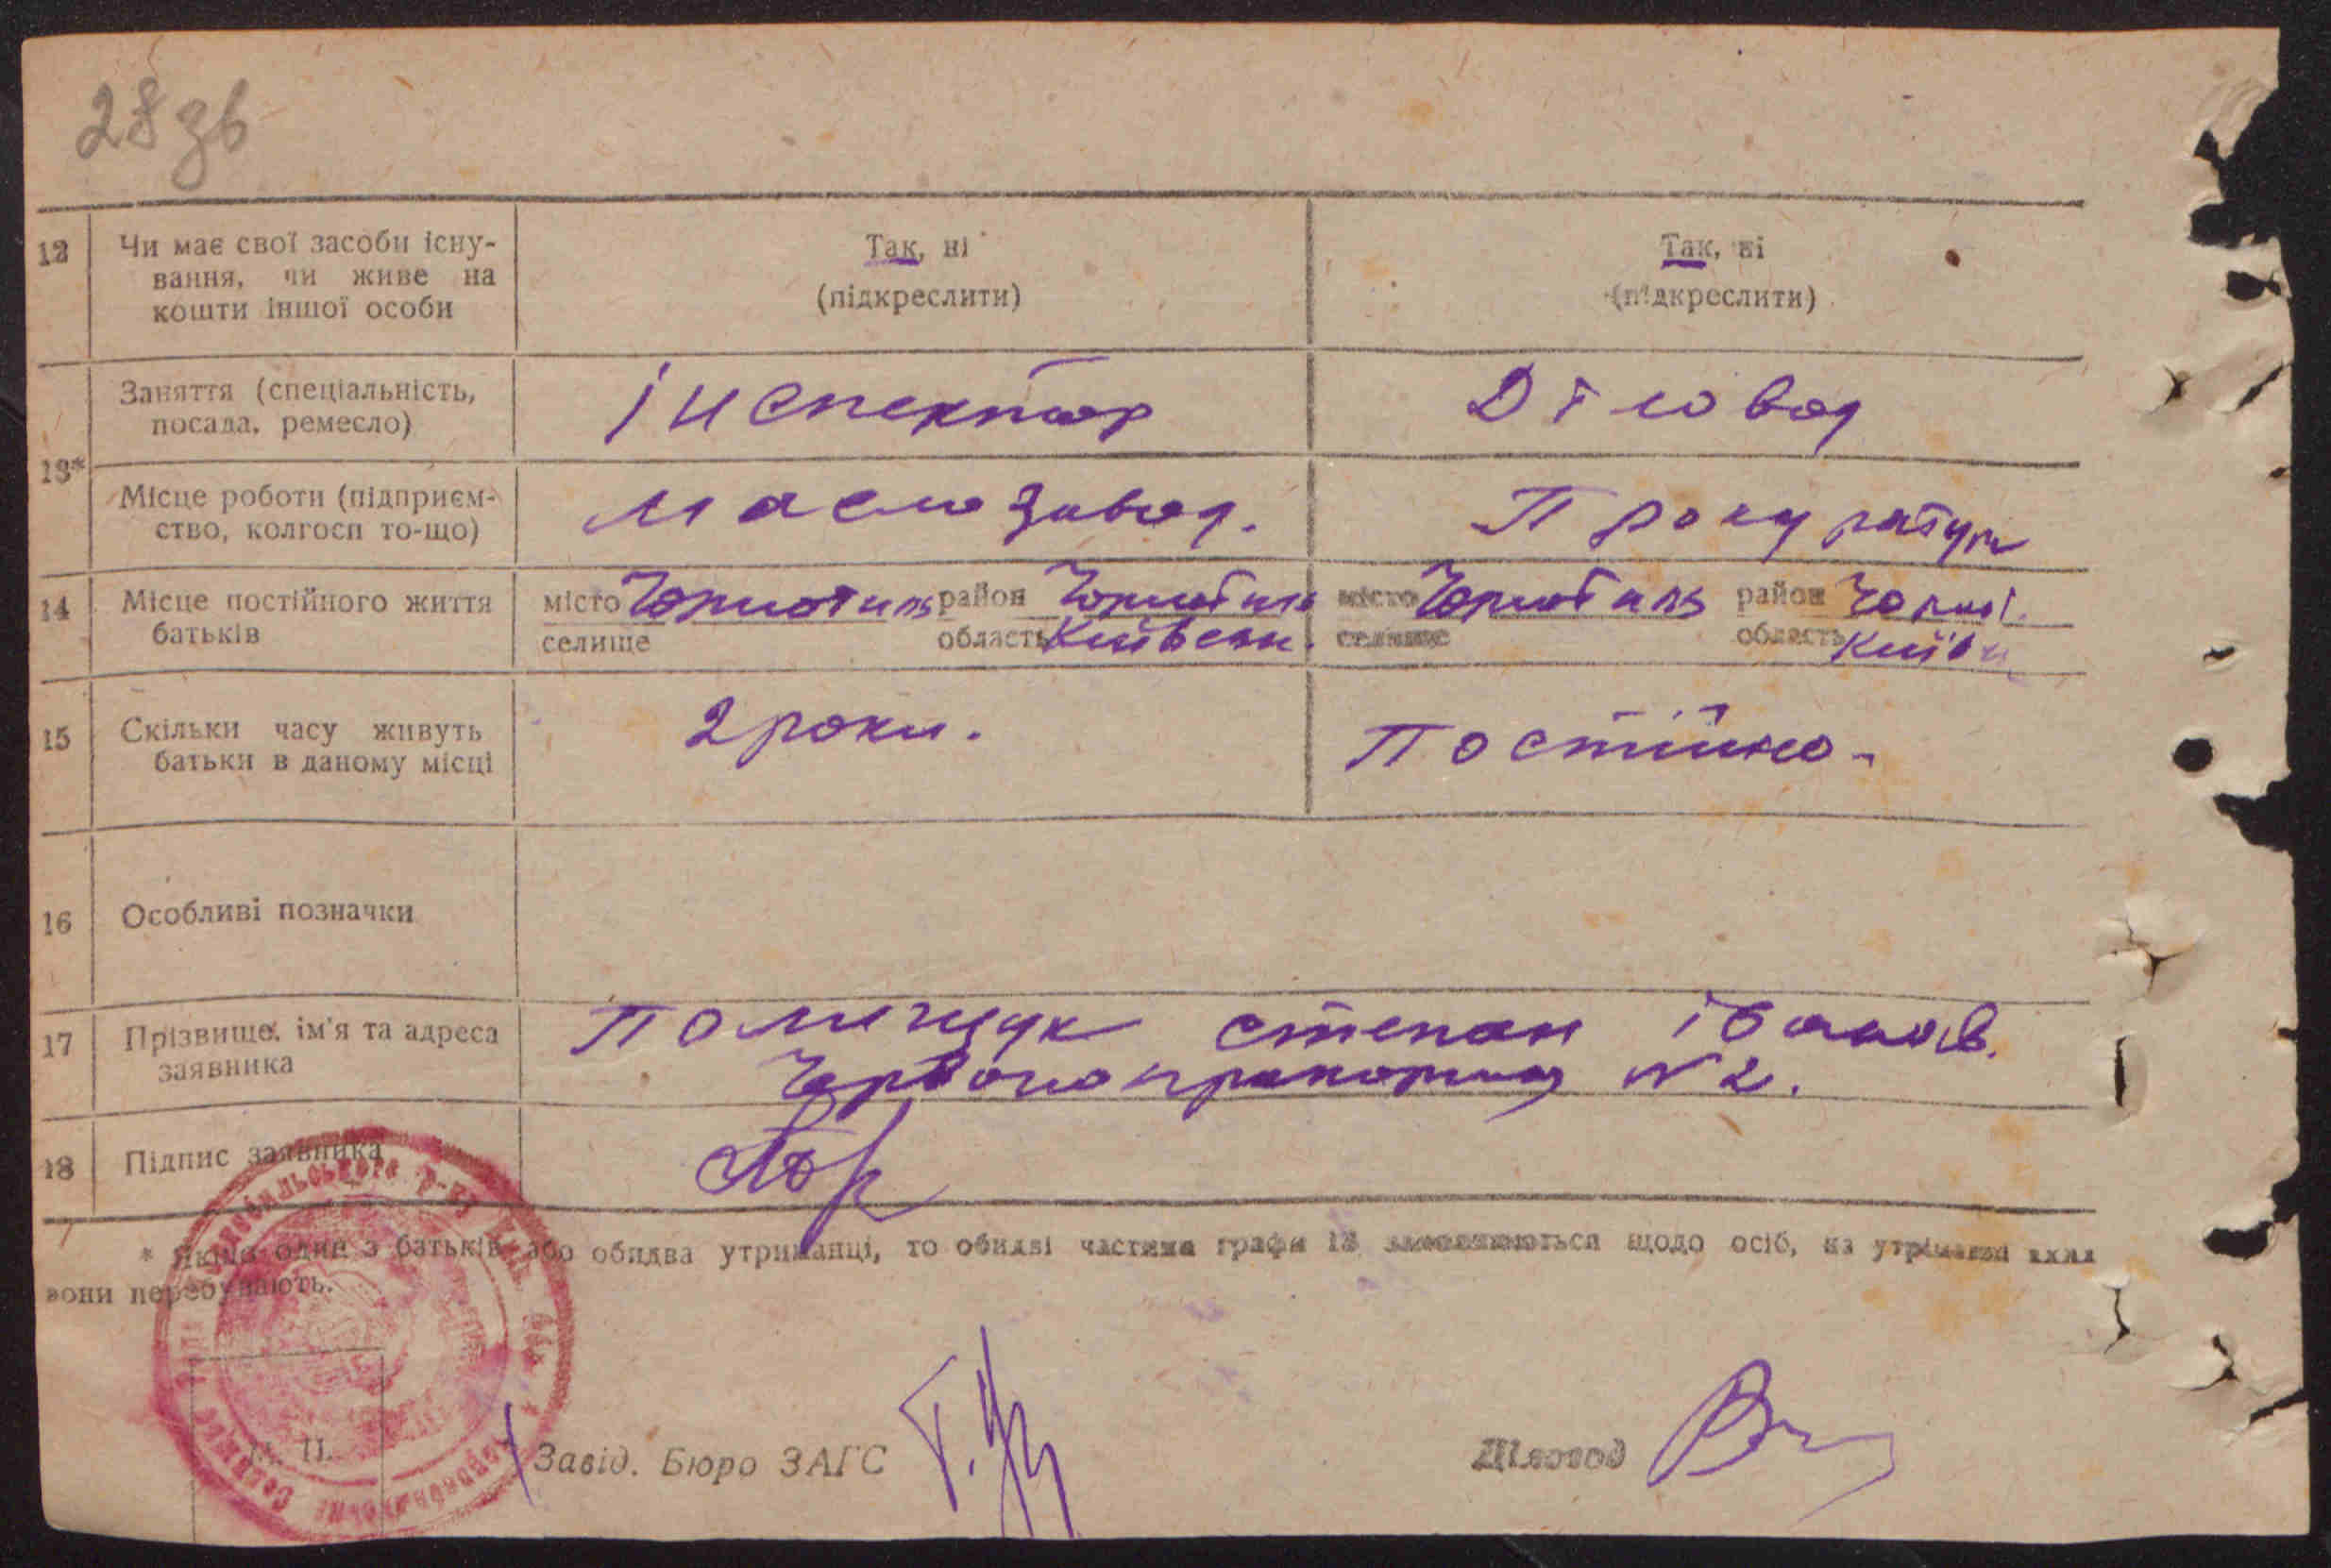 28 зв
12
Чи має свої засоби існу-
вання, чи живе на
кошти іншої особи
Так, ні
(підкреслити)
Так, ні
(підкреслити)
13*
Заняття (спеціальність,
посада, ремесло)
інспектор
Діловод
Місце роботи (підприєм-
ство, колгосп то-що)
маслозавод.
Прокуратури
14
Місце постійного життя
батьків
місто Чорнобиль район Чорнобиль
селище область Київськ.
місто Чорнобиль район Чорноб.
селище область Київ
15
Скільки часу живуть
батьки в даному місці
2 роки.
Постійно.
16
Особливі позначки
17
Прізвище, ім'я та адреса
заявника
Полищук степан іванов.
Червонопрапорна N 2.
18
Підпис заявника
* Якщо один з батьків або обидва утриманці, то обидві частини графи 13 заповнюються щодо осіб, на утриманні яких
вони перебувають.
М. П.
Завід. Бюро ЗАГС
Діловод